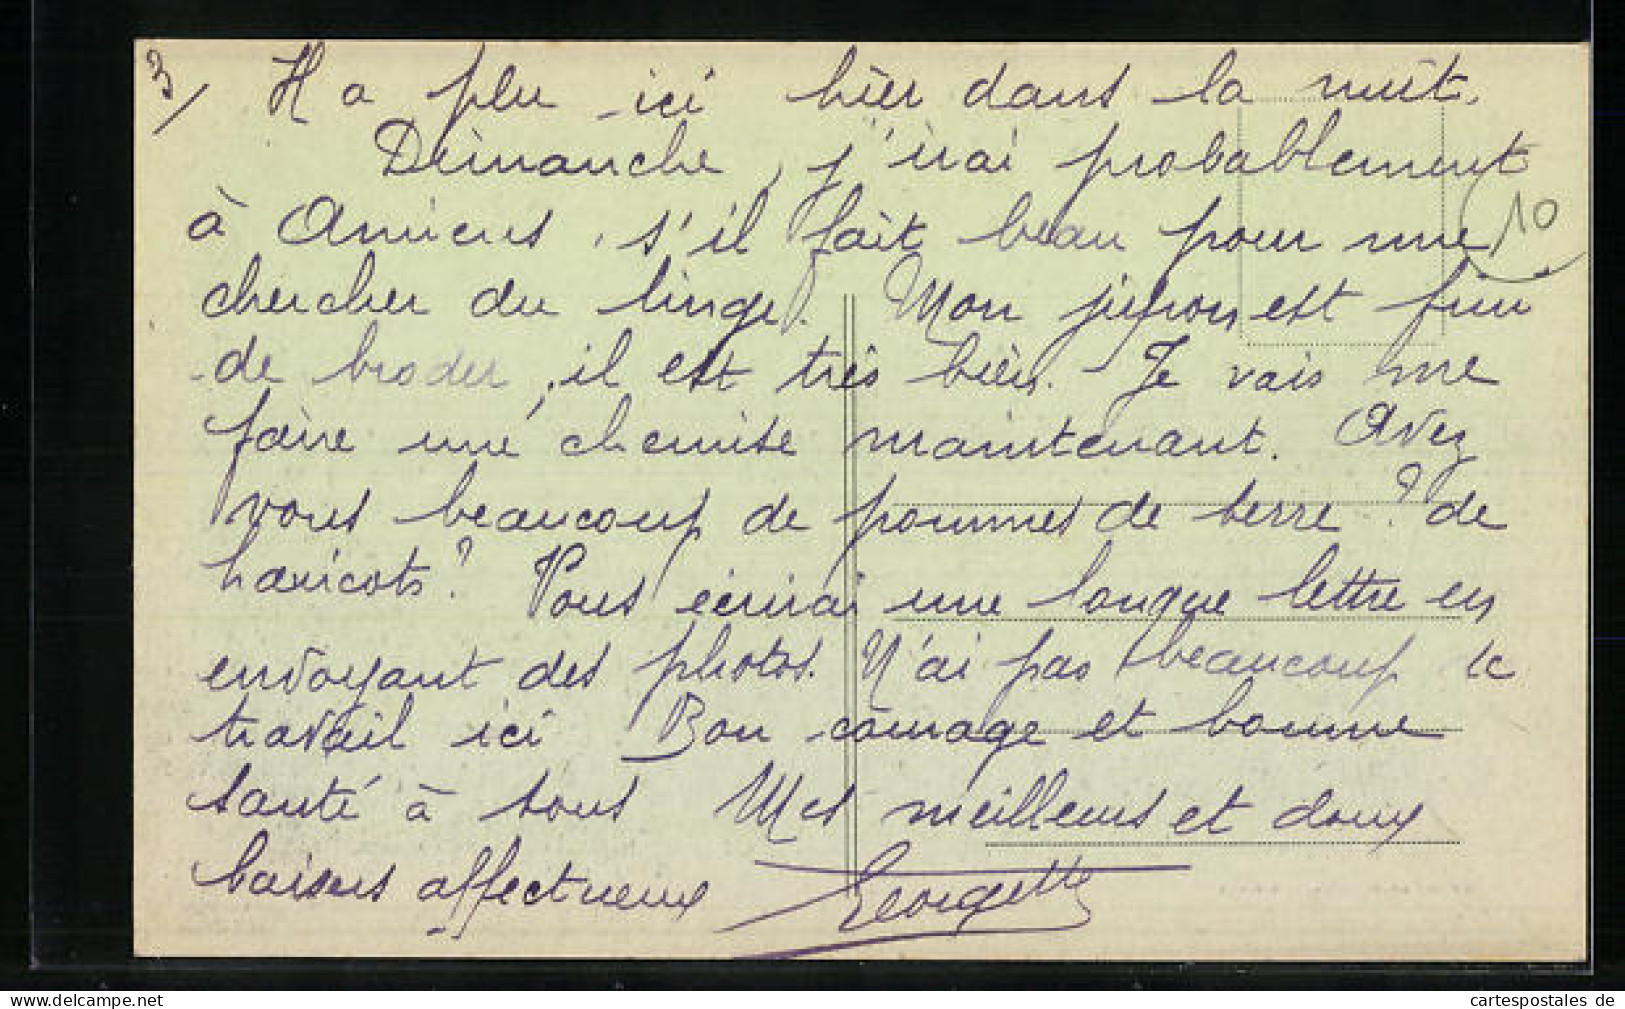 3/ Il a plu ici hier dans la nuit.
Dimanche, j'irai probablement
à Amiens, s'il fait beau pour me
10
chercher du linge. Mon jupon est fini
de broder, il est très bien. Je vais me
faire une chemise maintenant. Avez
vous beaucoup de pommes de terre ? de
haricots ? Vous écrirai une longue lettre en
envoyant des photos. N'ai pas beaucoup de
travail ici Bon courage et bonne
santé à tous Mes meilleurs et doux
baisers affectueux Georgette
cartespostales de